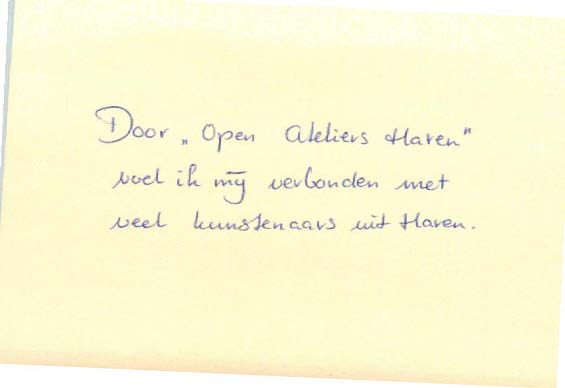 Door „Open Ateliers Haren"
voel ik mij verbonden met
veel kunstenaars uit Haren.